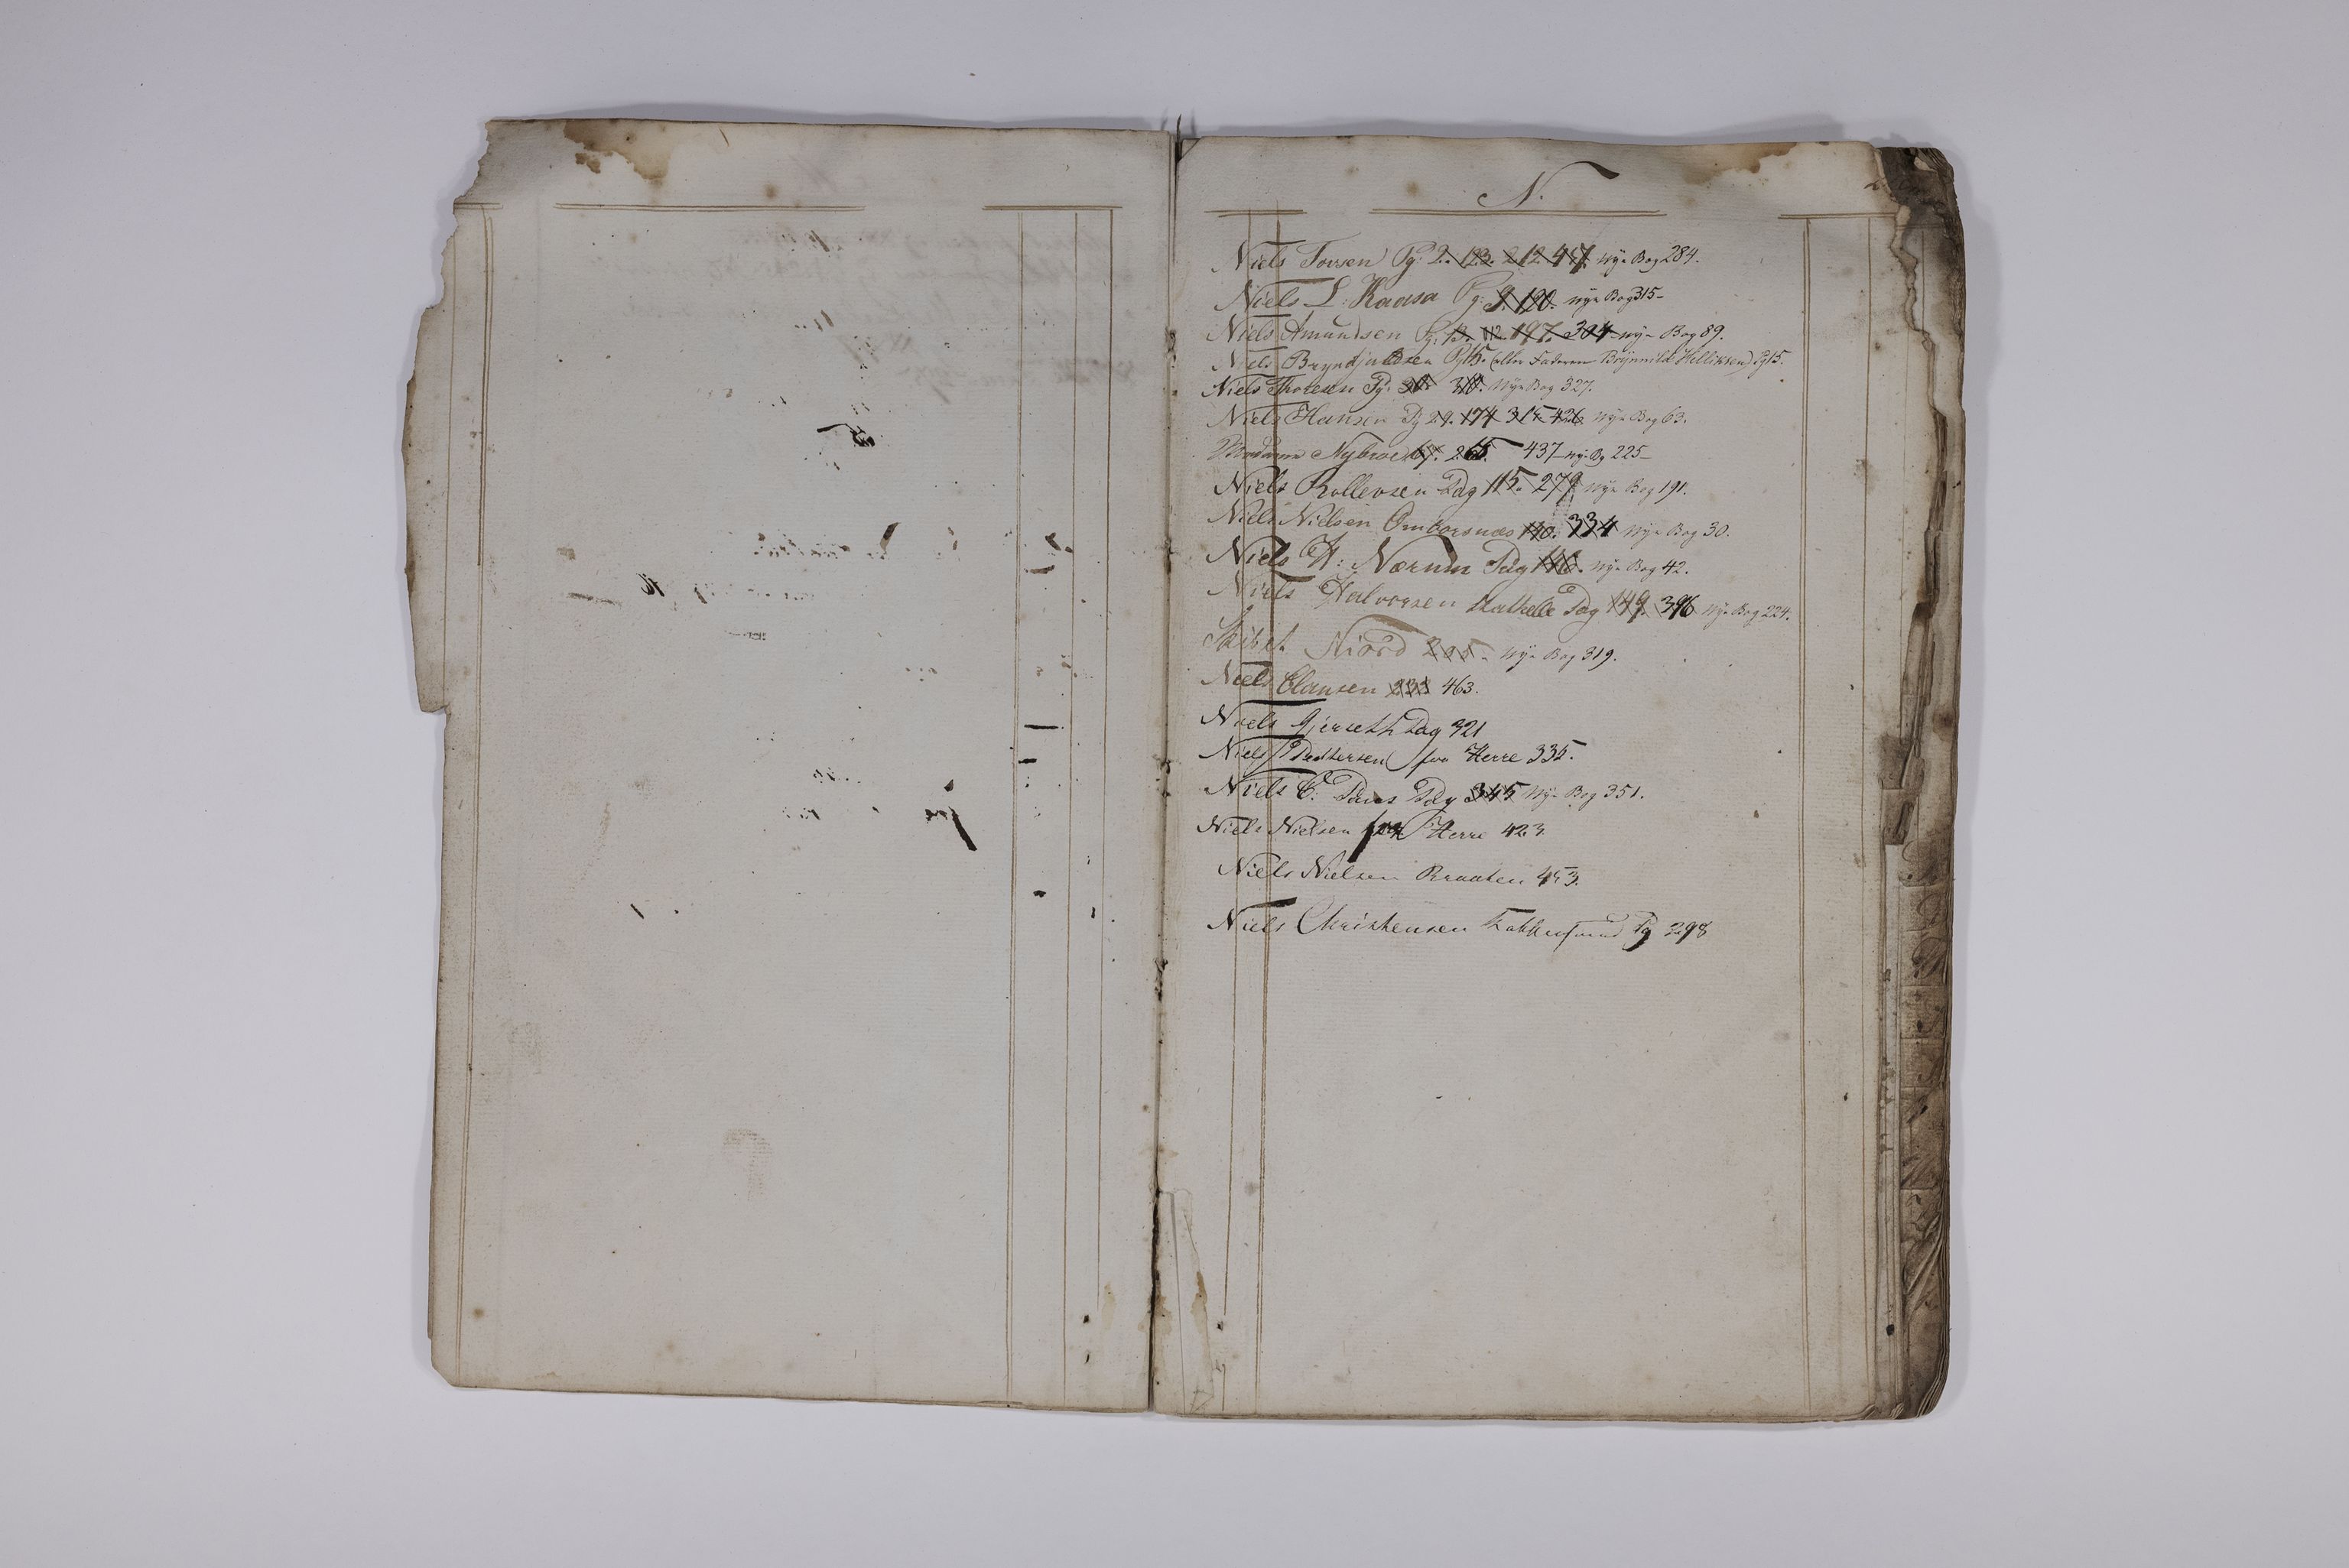 N.
Niels Torsen Pg: 2. 123. 212. 447. nÿe Bog 284.
Niels L: Kaasa Pg: 9. 120. nÿe Bog 315-
Niels Amundsen Pg: 13. 112 197. 304 nÿe Bog 89.
Niels Bryndjuldsen Pg 15. (eller Faderen Brÿnnild Helliksen) Pg 15.
Niels Thoresen Pg: 30. 310. Nÿe Bog 327.
Niels Hansen Pg 29. 174 315 426 Nÿe Bog 63.
Madame Nybroe 67. 265. 437 nÿe Bg 225-
Niels Rollevsen Pag 115. 279 Nÿe Bog 191.
Niels Nielsen Omborsnæs 140. 334 Nÿe Bog 30.
Niels H: Nærum Pag 146. Nÿe Bog 42.
Niels Halvorsen Stathelle Pag 149 396 Nÿe Bog 224.
Skibet Niord 205. Nÿe Bog 319.
Niels Clausen 233 463.
Niels Gjerseth Pag 321
Niels Pedtersen fra Herre 335.
Niels C: Paus Pag 345 Nÿe Bog 351.
Niels Nielsen fra Herre 423.
Niels Nielsen Braaten 453.
Niels Christensen Pg 298